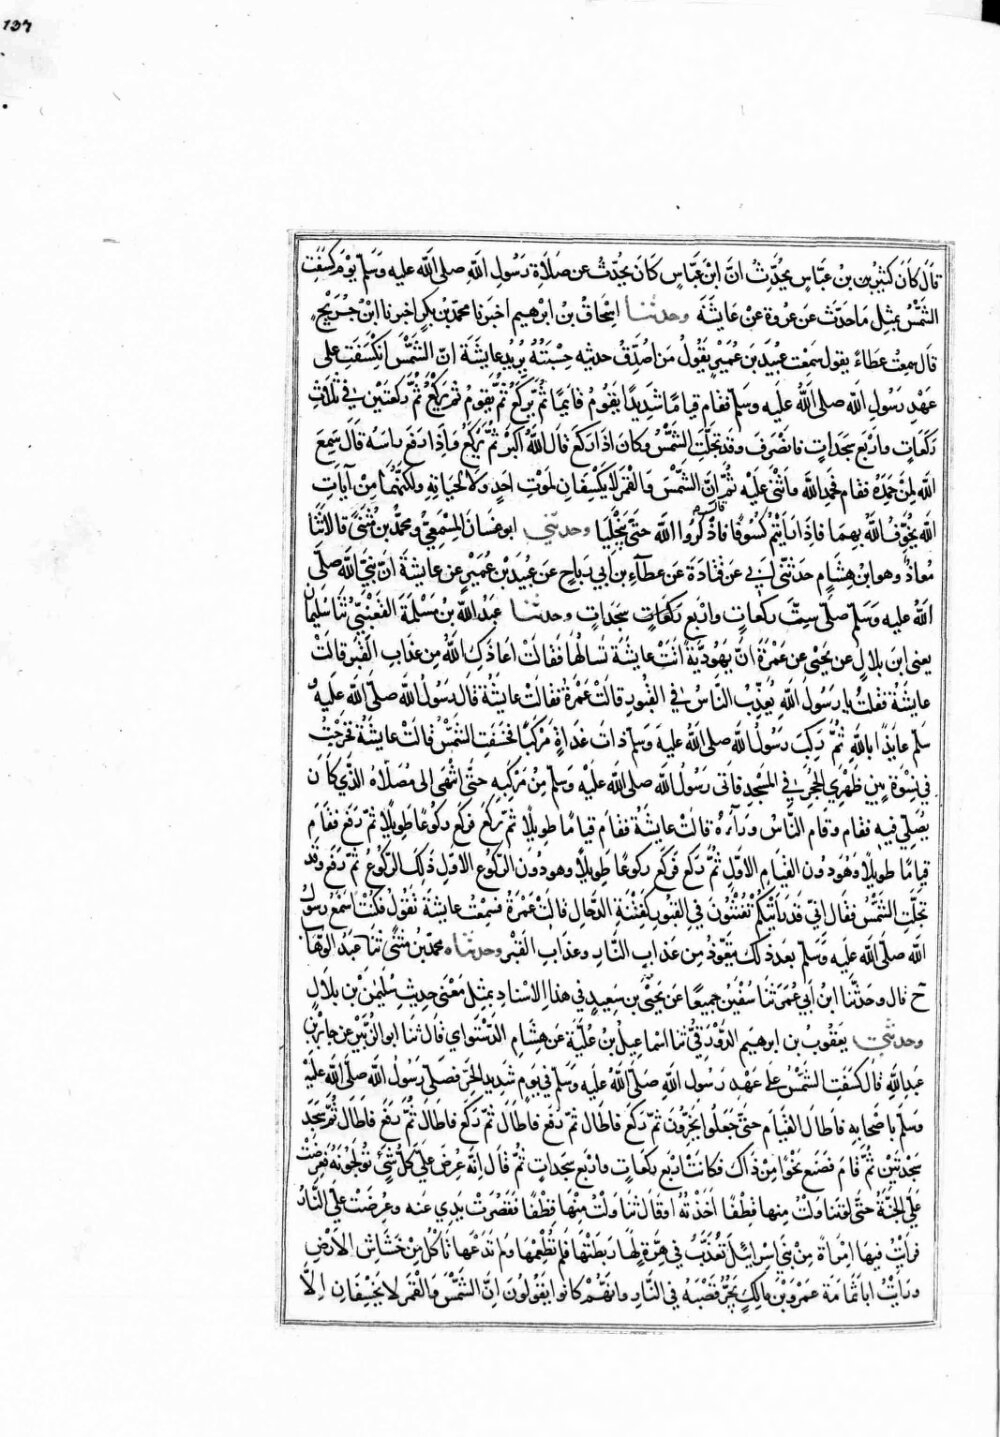 137
قال كان كثير بن بن عباس يحدث ان ابن عباس كان يحدث عن صلاة رسول الله صلى الله عليه وسلم يوم كسفت
الشمس بمثل ما حدث عن عروة عن عايشه وحدثنا اسحاق بن ابرهيم اخبرنا محمد بن بكر اخبرنا ابن جريج
قال سمعت عطاء يقول سمعت عبيد بن عمير يقول من اصدق حدثه حسبته يريد عايشة ان الشمس انكسفت على
عهد رسول الله صلى الله عليه وسلم فقام قيامًا شديدًا يقوم قايمًا ثم يركع ثم يقوم ثم يركع ثم ركعتين في ثلاث
ركعات واربع سجدات فانصرف وقد تجلت الشمس وكان اذا ركع قال الله اكبر ثم يركع واذا رفع راسه قال سمع
الله لمن حمده فقام فحمد الله واثنى عليه ثم ان الشمس والقمر لا يكسفان لموت احد ولا لحياته ولكنهما من آيات
الله يخوف الله بهما فاذا رايتم كسوفا فاذكروا الله حتى ينجليا وحدثني ابو غسان المسمعي ومحمد بن مثنى قالا ثنا
معاذ وهو ابن هشام حدثني ابي عن قتادة عن عطاء بن ابي رباح عن عبيد بن عمير عن عايشة ان نبي الله صلى
الله عليه وسلم صلى ست ركعات واربع سجدات وحدثنا عبد الله بن مسلمة القعنبي ثنا سليمان
يعني ابن بلال عن يحيى عن عمرة ان يهودية اتت عايشة تسالها فقالت اعاذك الله من عذاب القبر قالت
عايشة فقلت يا رسول الله يعذب الناس في القبور قالت عمرة فقالت عايشة قال رسول الله صلى الله عليه و
سلم عايذا بالله ثم ركب رسول الله صلى الله عليه وسلم ذات غداة مركبا فخسفت الشمس قالت عايشة فخرجت
في نسوة بين ظهري الحجر في المسجد فاتى رسول الله صلى الله عليه وسلم من مركبه حتى انتهى الى مصلاه الذي كان
يصلي فيه فقام وقام الناس وراءه قالت عايشة فقام قيامًا طويلًا ثم ركع فركع ركوعًا طويلًا ثم رفع فقام
قيامًا طويلًا وهو دون القيام الاول ثم ركع فركع ركوعًا طويلًا وهو دون الركوع الاول ذلك الركوع ثم رفع وقد
تجلت الشمس فقال اني قد رأيتكم تفتنون في القبور كفتنة الدجال قالت عمرة فسمعت عايشة تقول فكنت اسمع رسول
الله صلى الله عليه وسلم بعد ذلك يتعوذ من عذاب النار وعذاب القبر وحدثناه محمد بن مثنى ثنا عبد الوهاب
ح قال وحدثنا ابن ابي عمر ثنا سفين جميعا عن يحيى بن سعيد في هذا الاسناد بمثل معنى حديث سليمن بن بلال
وحدثني يعقوب بن ابرهيم الدورقي ثنا اسماعيل بن علية عن هشام الدستواي قال ثنا ابو الزبير عن جابر بن
عبد الله قال كسفت الشمس على عهد رسول الله صلى الله عليه وسلم في يوم شديد الحر فصلى رسول الله صلى الله عليه
وسلم باصحابه فاطال القيام حتى جعلوا يخرون ثم ركع فاطال ثم رفع فاطال ثم ركع فاطال ثم رفع فاطال ثم سجد
سجدتين ثم قام فصنع نحوًا من ذاك فكانت اربع ركعات واربع سجدات ثم قال انه عرض علي كل شيء تولجونه فعرضت
علي الجنة حتى لو تناولت منها قطفًا اخذته او قال تناولت منها قطفا فقصرت يدي عنه وعرضت علي النار
فرايت فيها امراة من بني اسرائيل تعذب في هرة لها ربطتها فلم تطعمها ولم تدعها تاكل من خشاش الارض
ورايت ابا ثمامة عمرو بن مالك يجر قصبه في النار وانهم كانوا يقولون ان الشمس والقمر لا يخسفان الا